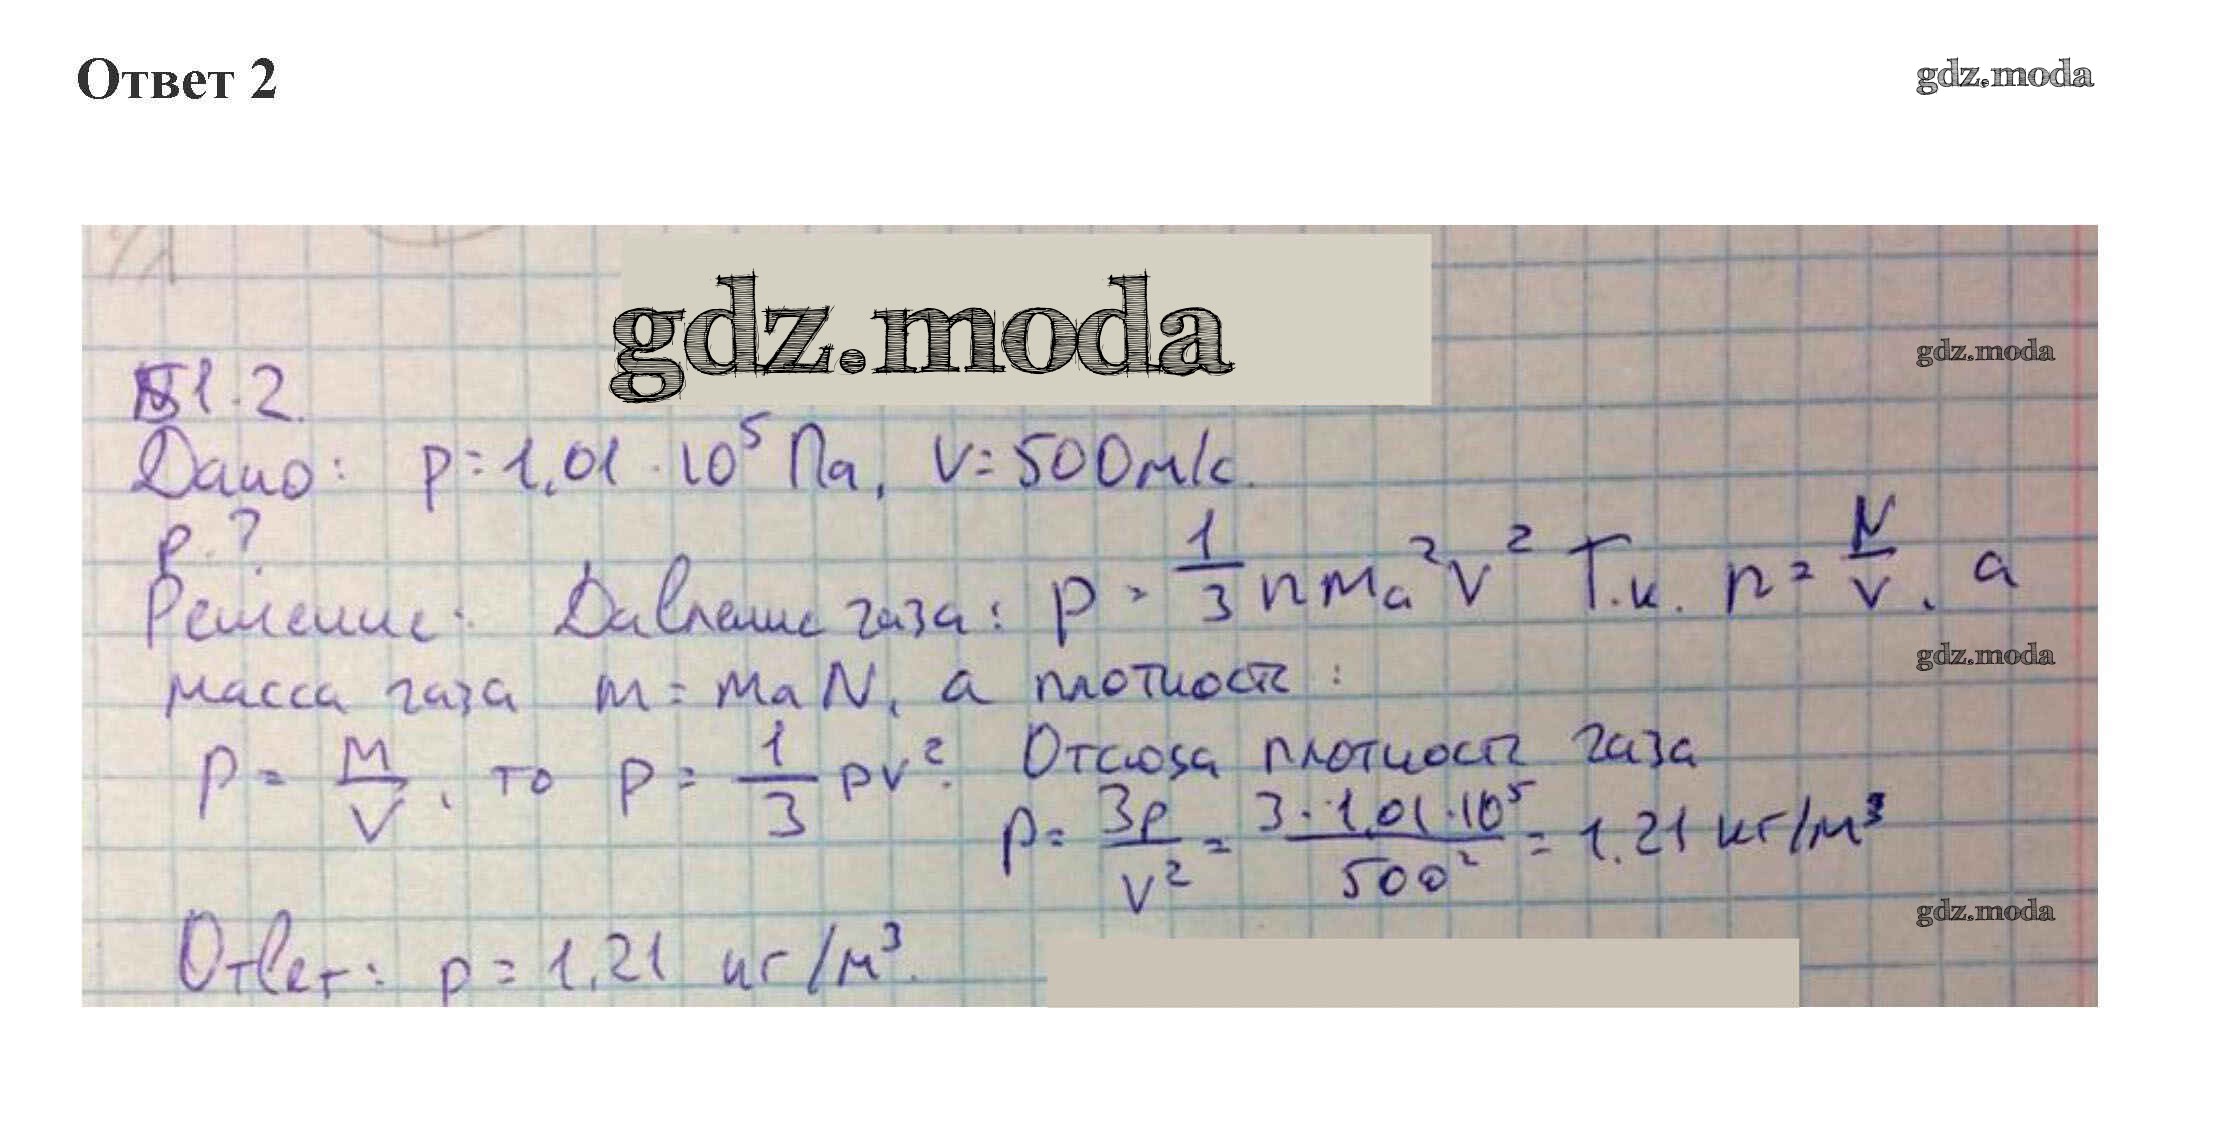 Ответ 2
gdz.moda
gdz.moda
51.2.
gdz.moda
Дано: p=1,01·10⁵ Па, V=500м/с.
ρ-?
Решение: Давление газа: p = 1/3 nma²v² Т.к. n = N/V, а
gdz.moda
масса газа m = ma N, а плотность:
ρ = M/V, то p = 1/3 ρv². Отсюда плотность газа
ρ = 3p/v² = 3·1,01·10⁵/500² = 1.21 кг/м³
gdz.moda
Ответ: ρ = 1.21 кг/м³.